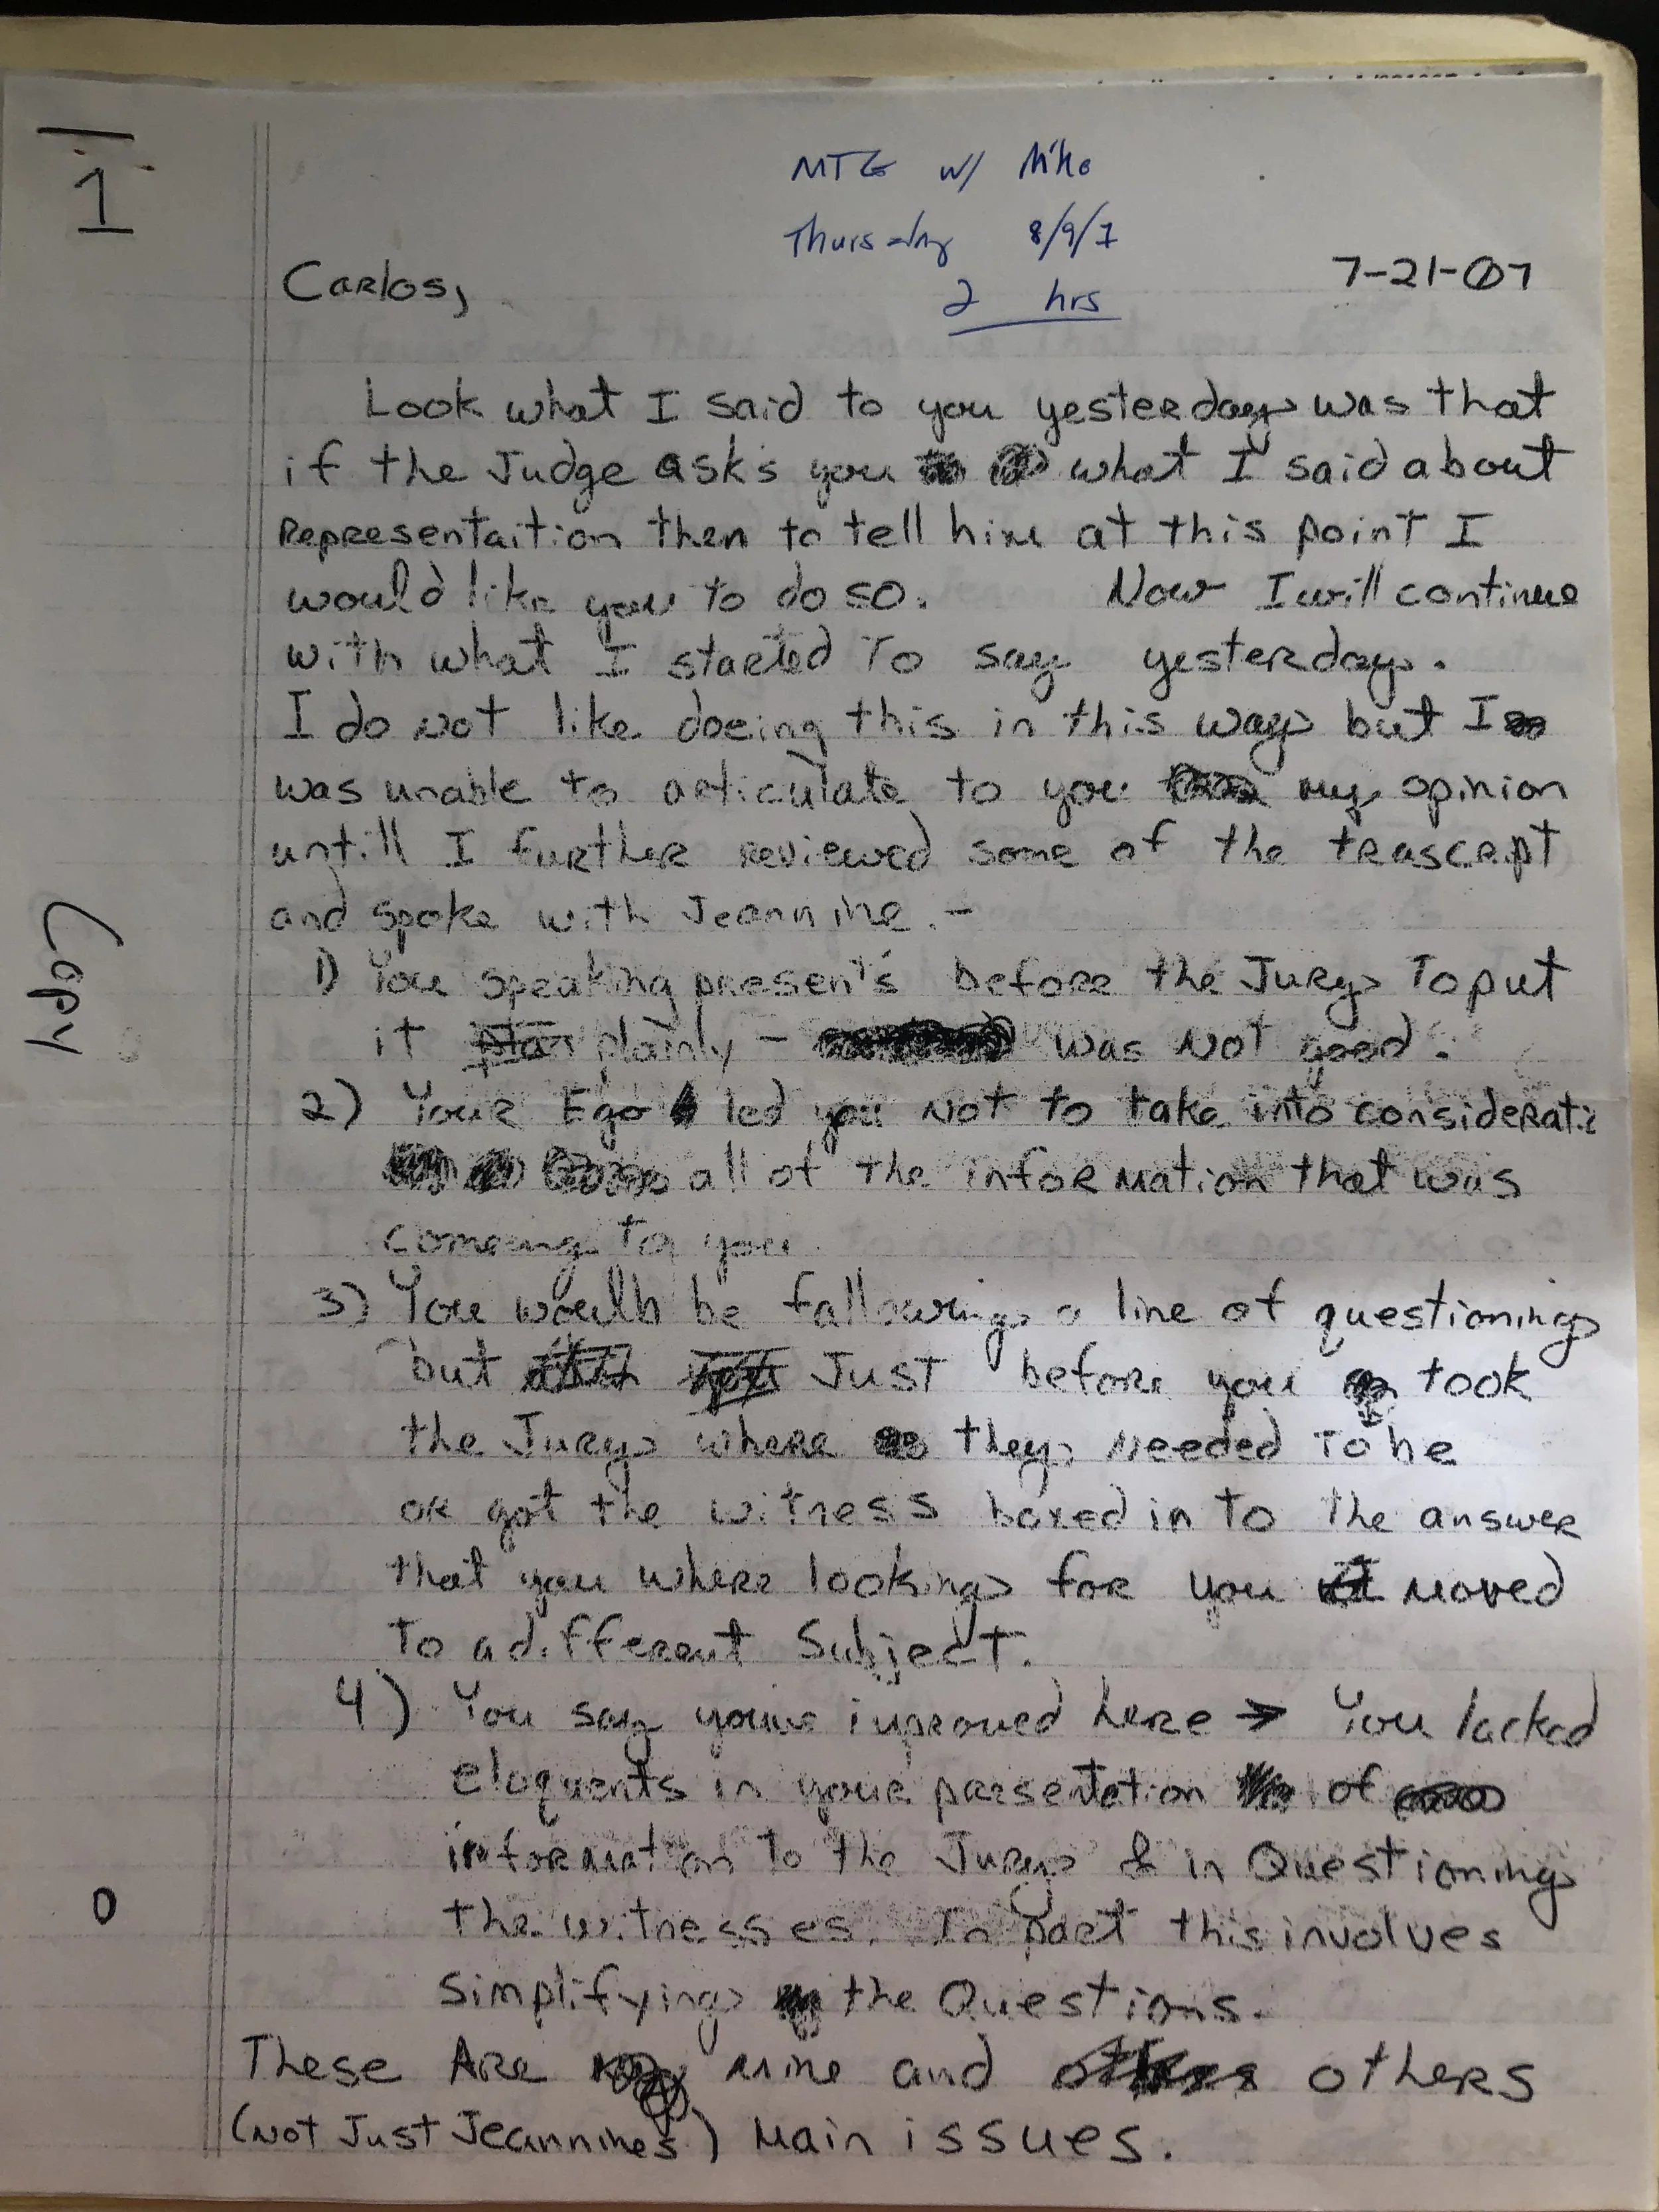 1
MTG w/ Mike
Thursday 8/9/7
2 hrs
7-21-07
Carlos,
Look what I said to you yesterday was that
if the Judge asks you what I said about
Representaition then to tell him at this point I
would like you to do so. Now I will continue
with what I started To say yesterday.
I do not like doeing this in this way but I
was unable to articulate to you my opinion
untill I further reviewed some of the trascript
and spoke with Jeannine. -
1) You speaking presen's before the Jury To put
it plainly - was Not good.
2) Your Ego led you Not to take into considerati
all of the information that was
comeing to you
3) You would be following a line of questioning
but Just before you took
the Jury where they Needed To be
or got the witness boxed in To the answer
that you where looking for you moved
To a different Subject.
4) You say you've improved here → You lacked
eloquents in your parsentation of
information To the Jury & in Questioning
the witnesses. In part this involves
simplifying the Questions.
These Are mine and others
(Not Just Jeannine's) Main issues.
Copy
0